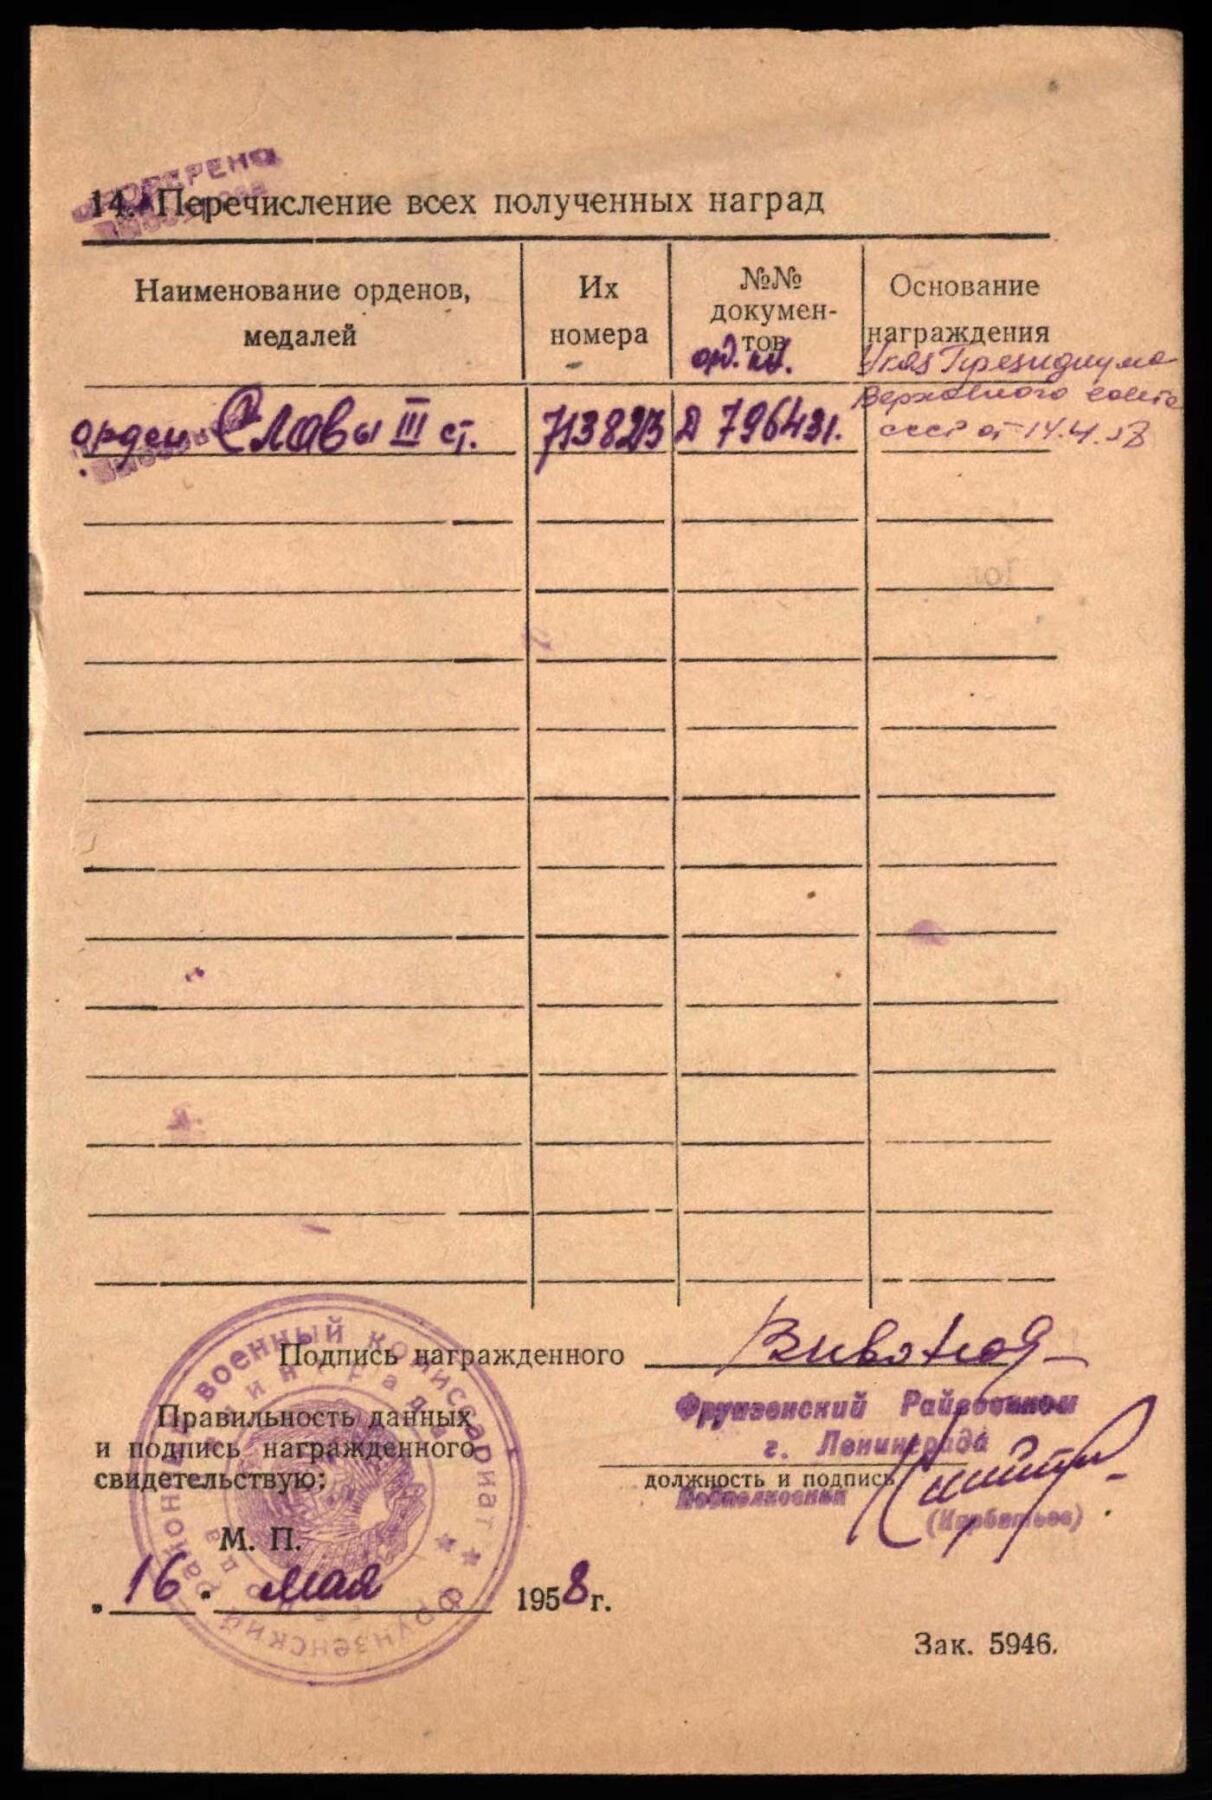 ПРОВЕРЕНО
14. Перечисление всех полученных наград
Наименование орденов,
медалей
Их
номера
№№
докумен-
тов
орд. кн.
Основание
награждения
Указ Президиума
Верховного совета
СССР от 14.4.58
орден Славы III ст.
713823
Д 796431.
Подпись награжденного
Правильность данных
и подпись награжденного
свидетельствую:
Фрунзенский Райвоенком
г. Ленинграда
должность и подпись
Подполковник
М. П.
Фрунзенский районный военный комиссариат
"16" мая 1958 г.
Зак. 5946.